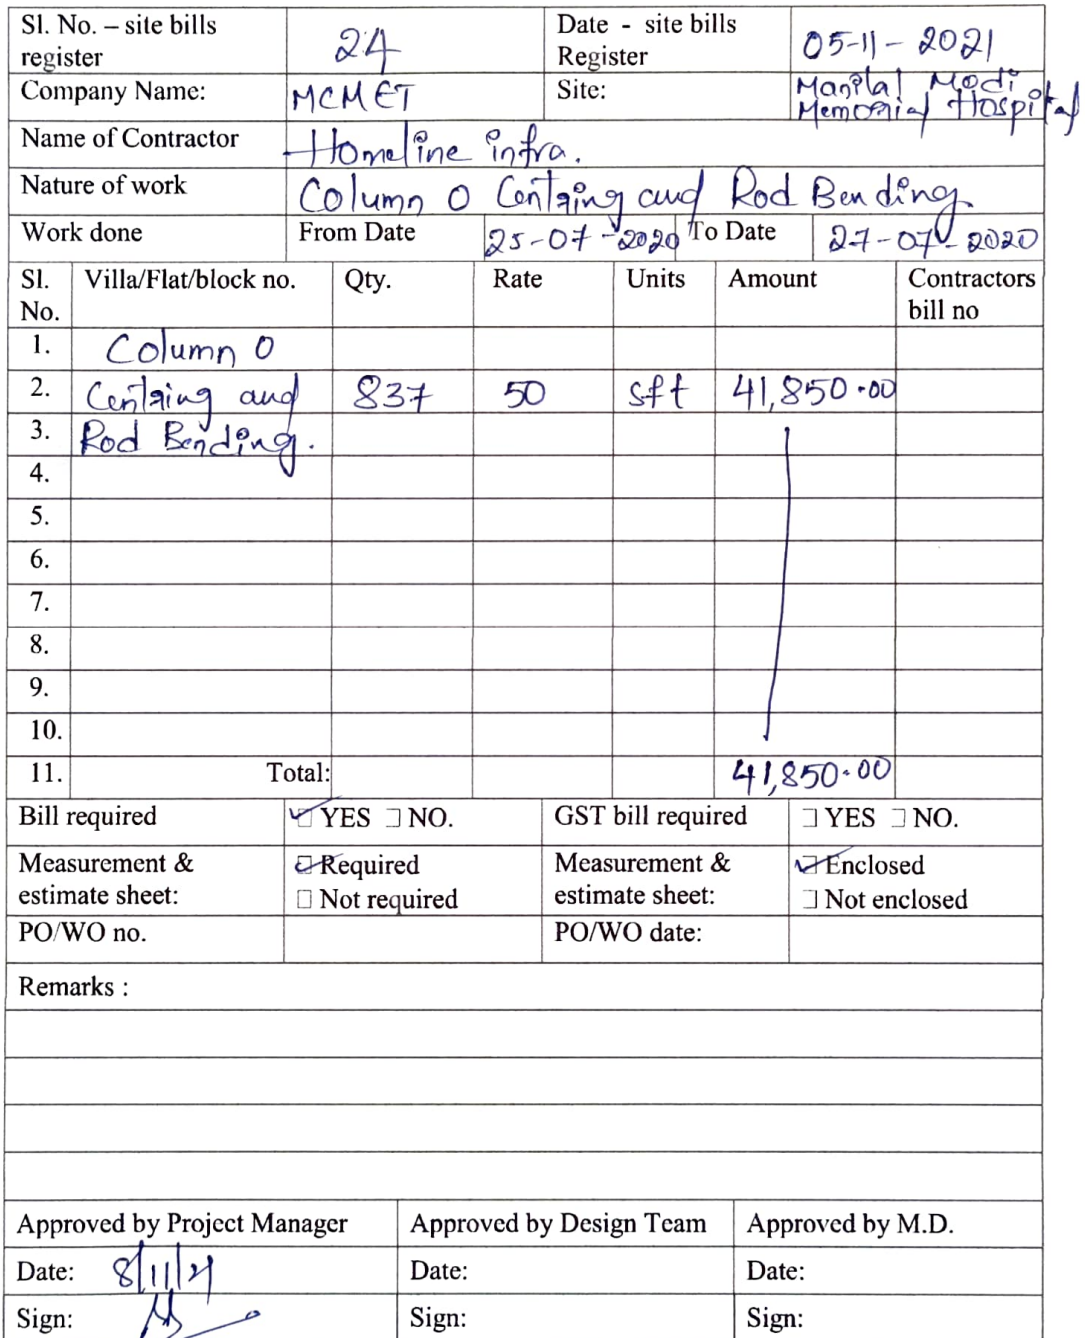 Sl. No. – site bills register 24 Date - site bills Register 05-11-2021
Company Name: MCMET Site: Manilal Modi Memorial Hospital
Name of Contractor Homeline infra.
Nature of work Column 0 Centring and Rod Bending
Work done From Date 25-07-2020 To Date 27-07-2020
Sl. No. Villa/Flat/block no. Qty. Rate Units Amount Contractors bill no
1. Column 0
2. Centring and 837 50 sft 41,850.00
3. Rod Bending.
4.
5.
6.
7.
8.
9.
10.
11. Total: 41,850.00
Bill required YES NO. GST bill required YES NO.
Measurement & estimate sheet: Required Not required Measurement & estimate sheet: Enclosed Not enclosed
PO/WO no. PO/WO date:
Remarks :
Approved by Project Manager Approved by Design Team Approved by M.D.
Date: 8/11/21 Date: Date:
Sign: Sign: Sign: